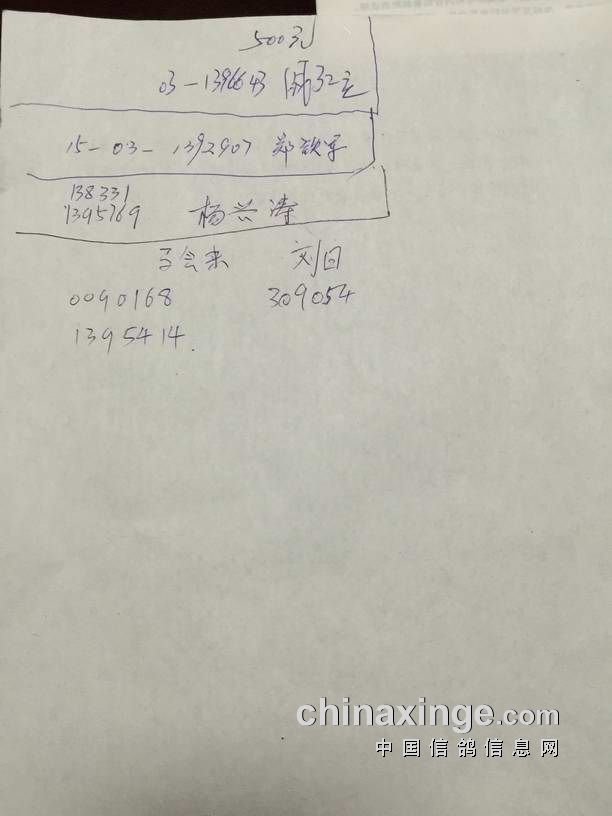 03-1396643
15-03-1392907 郑
138331
1395769 杨兴涛
马会来 刘日
0090168 309054
1395414.
chinaxinge.com
中国信鸽信息网